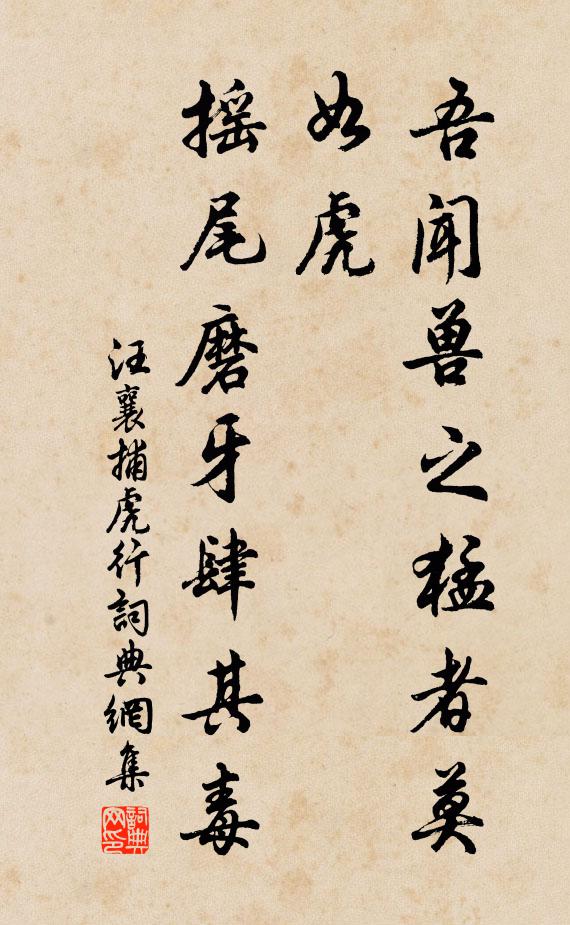 吾闻兽之猛者莫
如虎
摇尾磨牙肆其毒
汪襄捕虎行詞典網集
詞典
网印